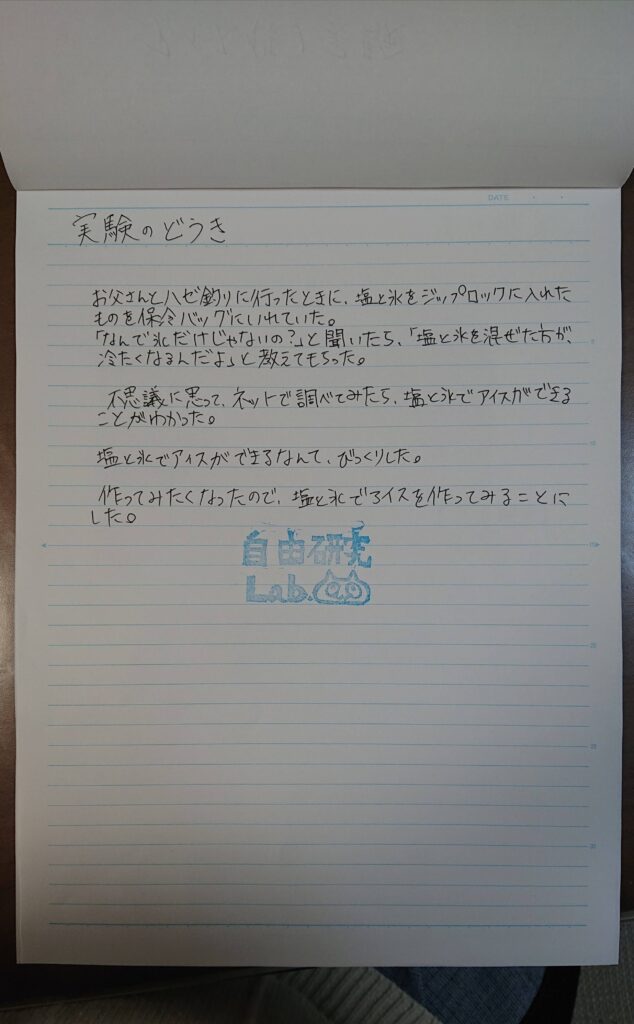 DATE
実験のどうき
お父さんとハゼ釣りに行ったときに、塩と氷をジップロックに入れた
ものを保冷バッグにいれていた。
「なんで氷だけじゃないの?」と聞いたら、「塩と氷を混ぜた方が、
冷たくなるんだよ」と教えてもらった。
不思議に思って、ネットで調べてみたら、塩と氷でアイスができる
ことがわかった。
塩と氷でアイスができるなんて、びっくりした。
作ってみたくなったので、塩と氷でアイスを作ってみることに
した。
自由研究
Lab.